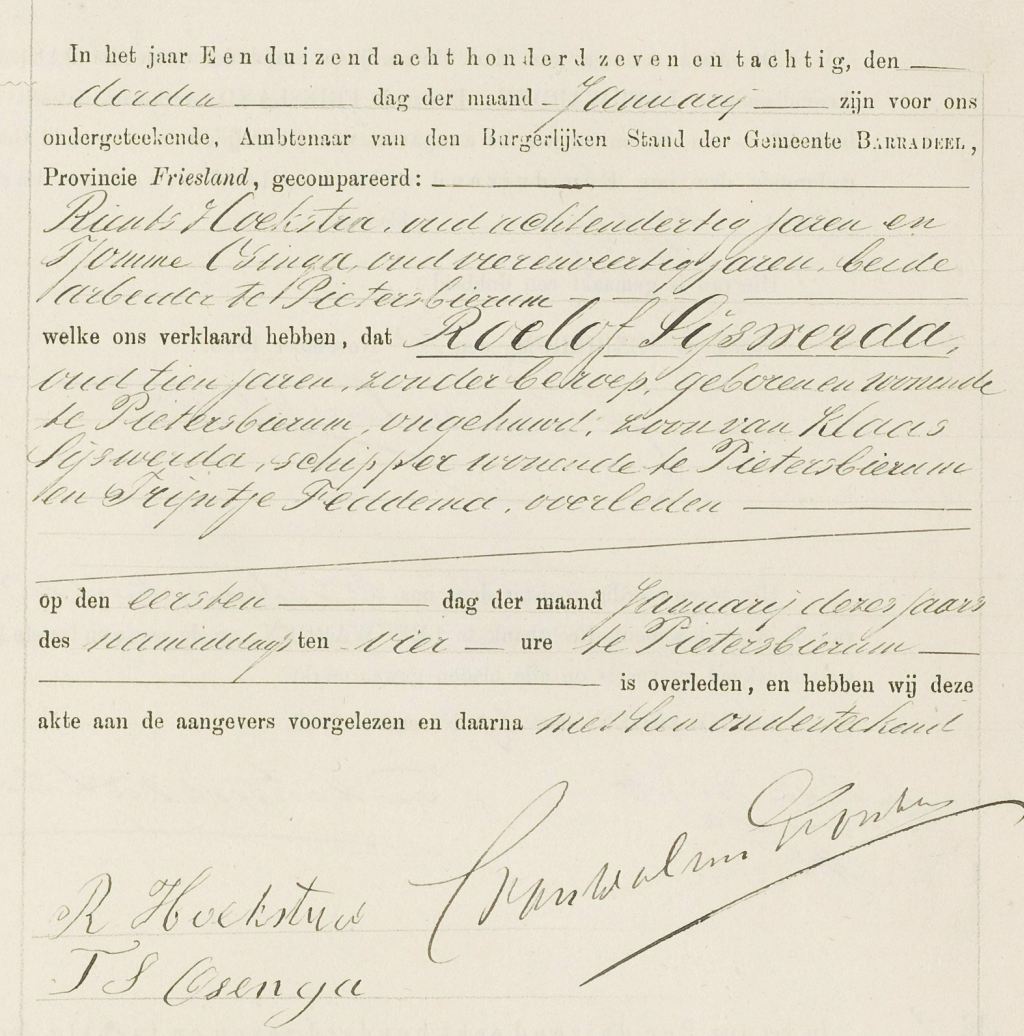 In het jaar Een duizend acht honderd zeven en tachtig, den
derden dag der maand Januarij zijn voor ons
ondergeteekende, Ambtenaar van den Burgerlijken Stand der Gemeente BARRADEEL,
Provincie Friesland, gecompareerd:
Rients Hoekstra, oud achtendertig jaren en
Tjomme Osinga, oud vierenveertig jaren, beide
arbeider te Pietersbierum
welke ons verklaard hebben, dat Roelof Sijswerda,
oud tien jaren, zonder beroep, geboren en wonende
te Pietersbierum, ongehuwd, zoon van Klaas
Sijswerda, schipper wonende te Pietersbierum
en Trijntje Feddema, overleden
op den eersten dag der maand Januarij dezes jaars
des namiddags ten vier ure te Pietersbierum
is overleden, en hebben wij deze
akte aan de aangevers voorgelezen en daarna met hen onderteekend
R Hoekstra
T S Osenga